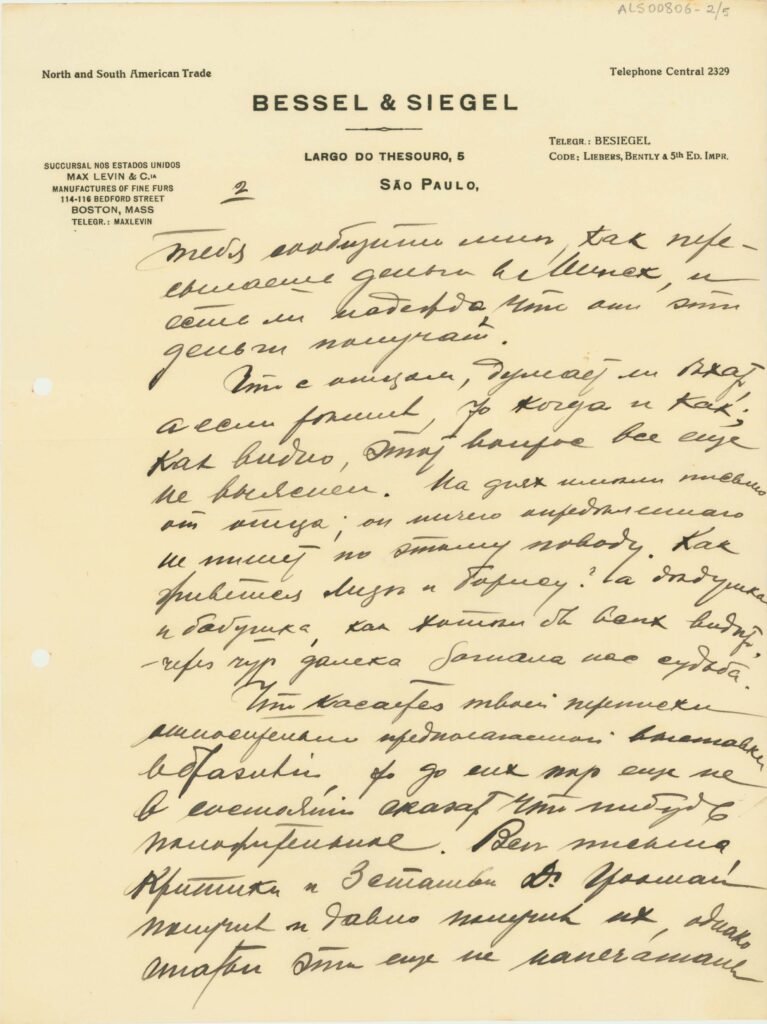 ALS00806-2/5
North and South American Trade
Telephone Central 2329
BESSEL & SIEGEL
LARGO DO THESOURO, 5
SÃO PAULO,
TELEGR.: BESIEGEL
CODE: LIEBERS, BENTLY & 5th ED. IMPR.
SUCCURSAL NOS ESTADOS UNIDOS
MAX LEVIN & C.IA
MANUFACTURES OF FINE FURS
114-116 BEDFORD STREET
BOSTON, MASS
TELEGR.: MAXLEVIN
2
тебя сообщить мне, как пере-
сылаете деньги в Минск, и
есть ли надежда, что они эти
деньги получат.
Что с отцом, думает ли ехать,
а если то когда и как;
как видно, этот вопрос все еще
не выяснен. На днях имели письмо
от отца; он ничего определенного
не пишет по этому поводу. Как
живется Лизе и Борису? а дедушка
и бабушка, как хотели бы всех видеть,
через чур далеко загнала нас судьба.
Что касается твоей переписки
относительно предполагаемой выставки
в Бразилии, то до сих пор еще не
в состоянии сказать что нибудь
положительное. Все письма,
Критики и 3 статьи Dr
получил и давно получил их, однако
статьи эти еще не напечатаны